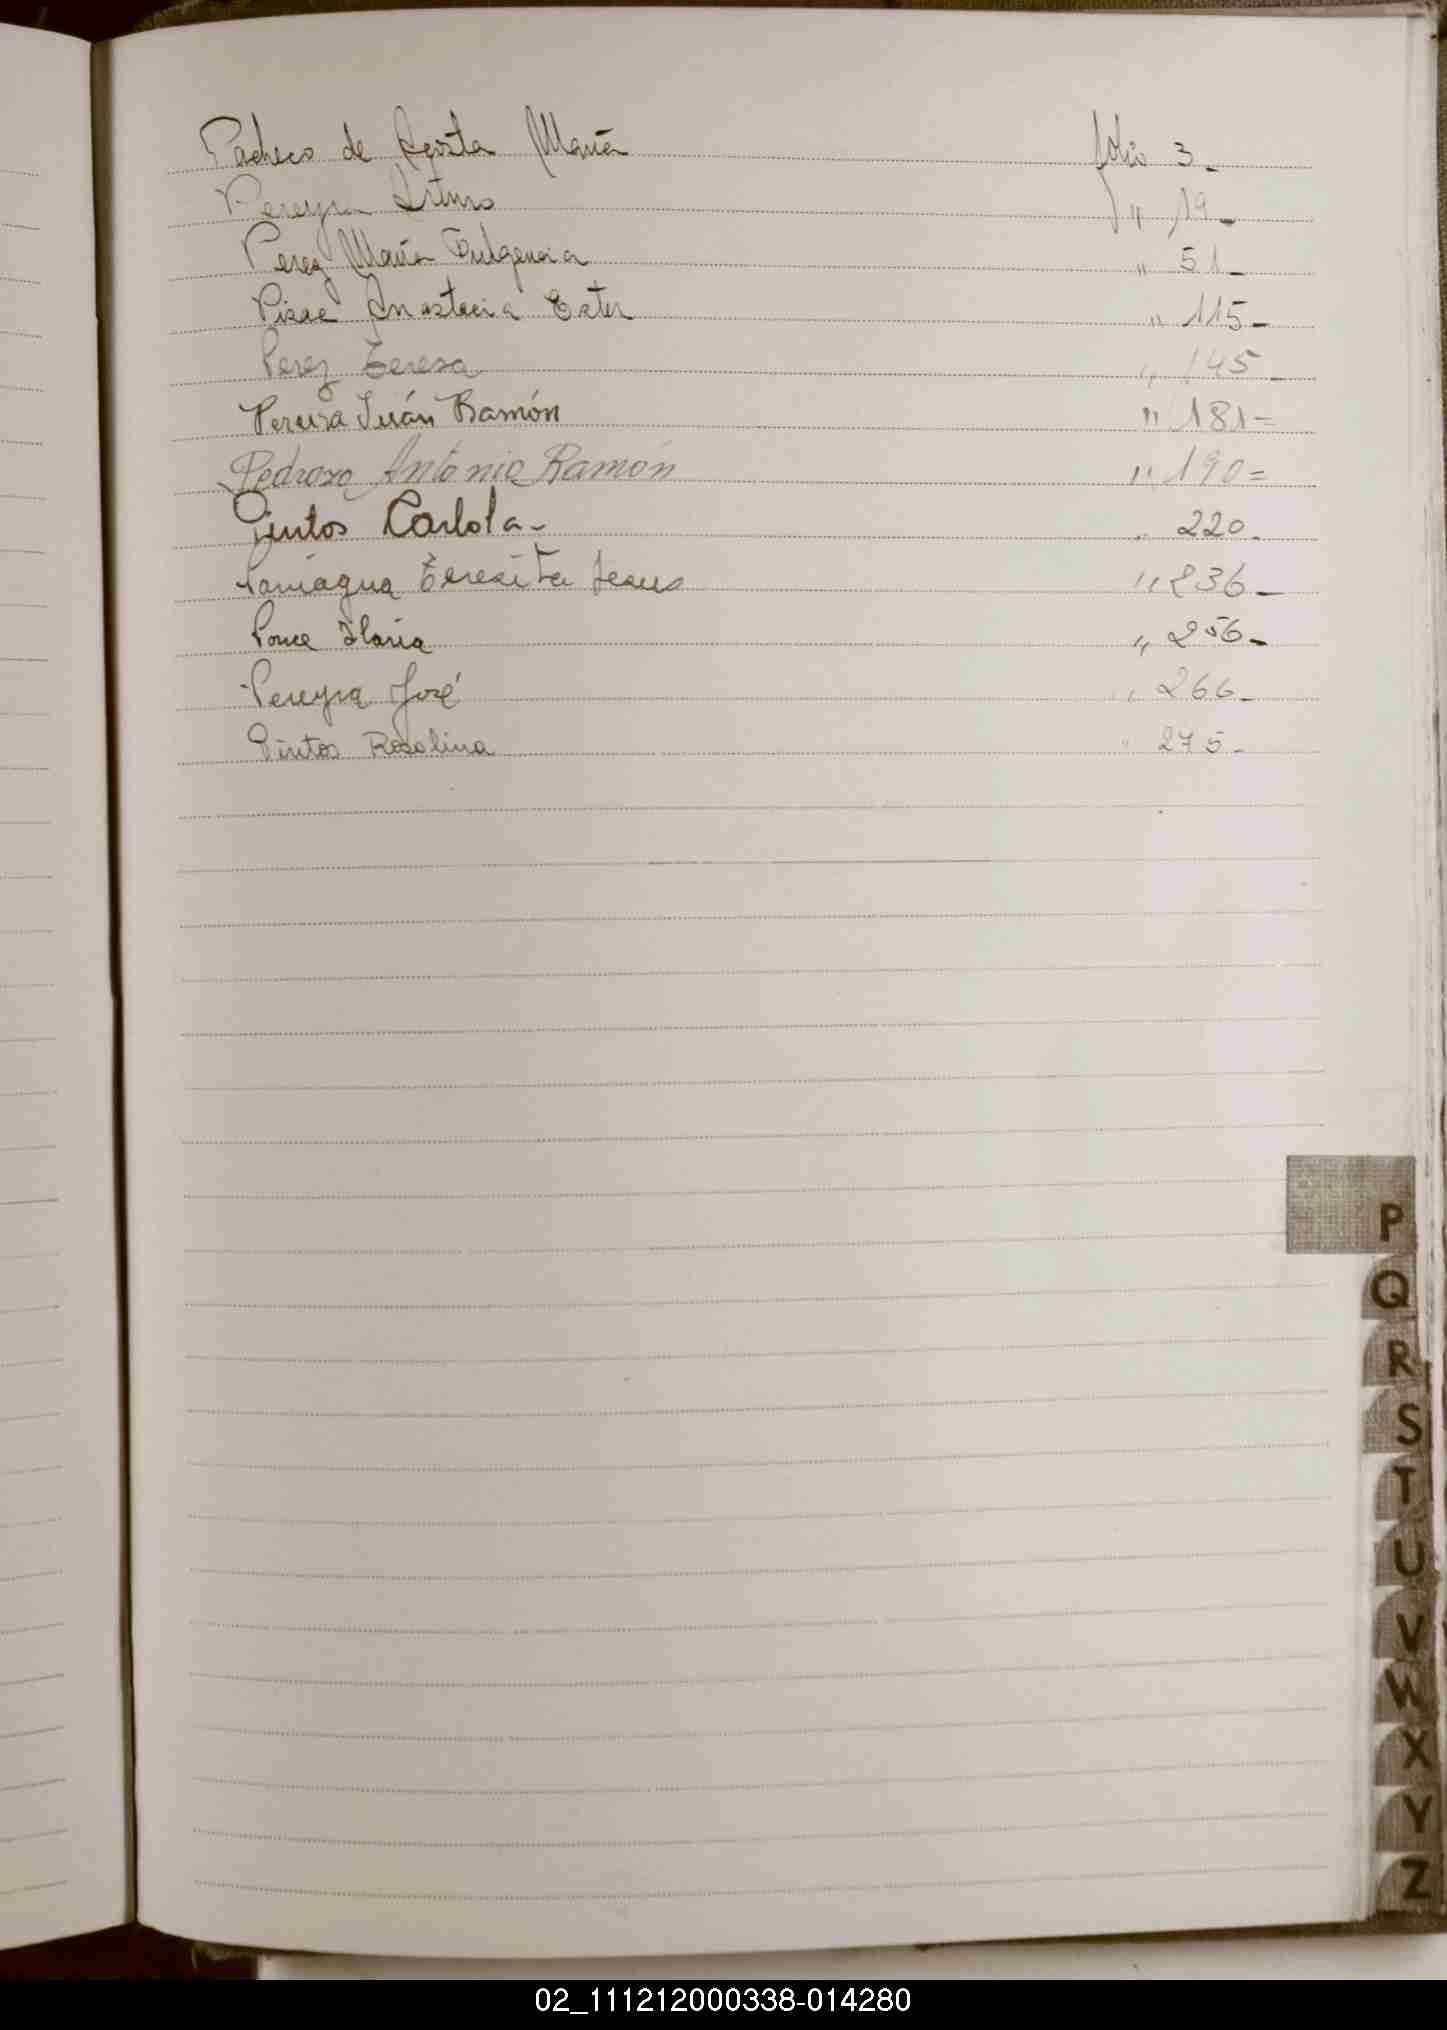 Pacheco de Acosta María folio 3-
Pereyra Arturo " 19-
Perez María Fulgencia " 51-
Anastacia Ester " 115-
Perez Teresa " 145-
Pereira Juán Ramón " 181=
Pedrozo Antonio Ramón " 190=
Pintos Carlota- " 220-
Paniagua Teresita Jesus " 236-
Ponce Ilaria " 256-
Pereyra José " 266-
Pintos Rosalina " 275-
P
Q
R
S
T
U
V
W
X
Y
Z
02_111212000338-014280